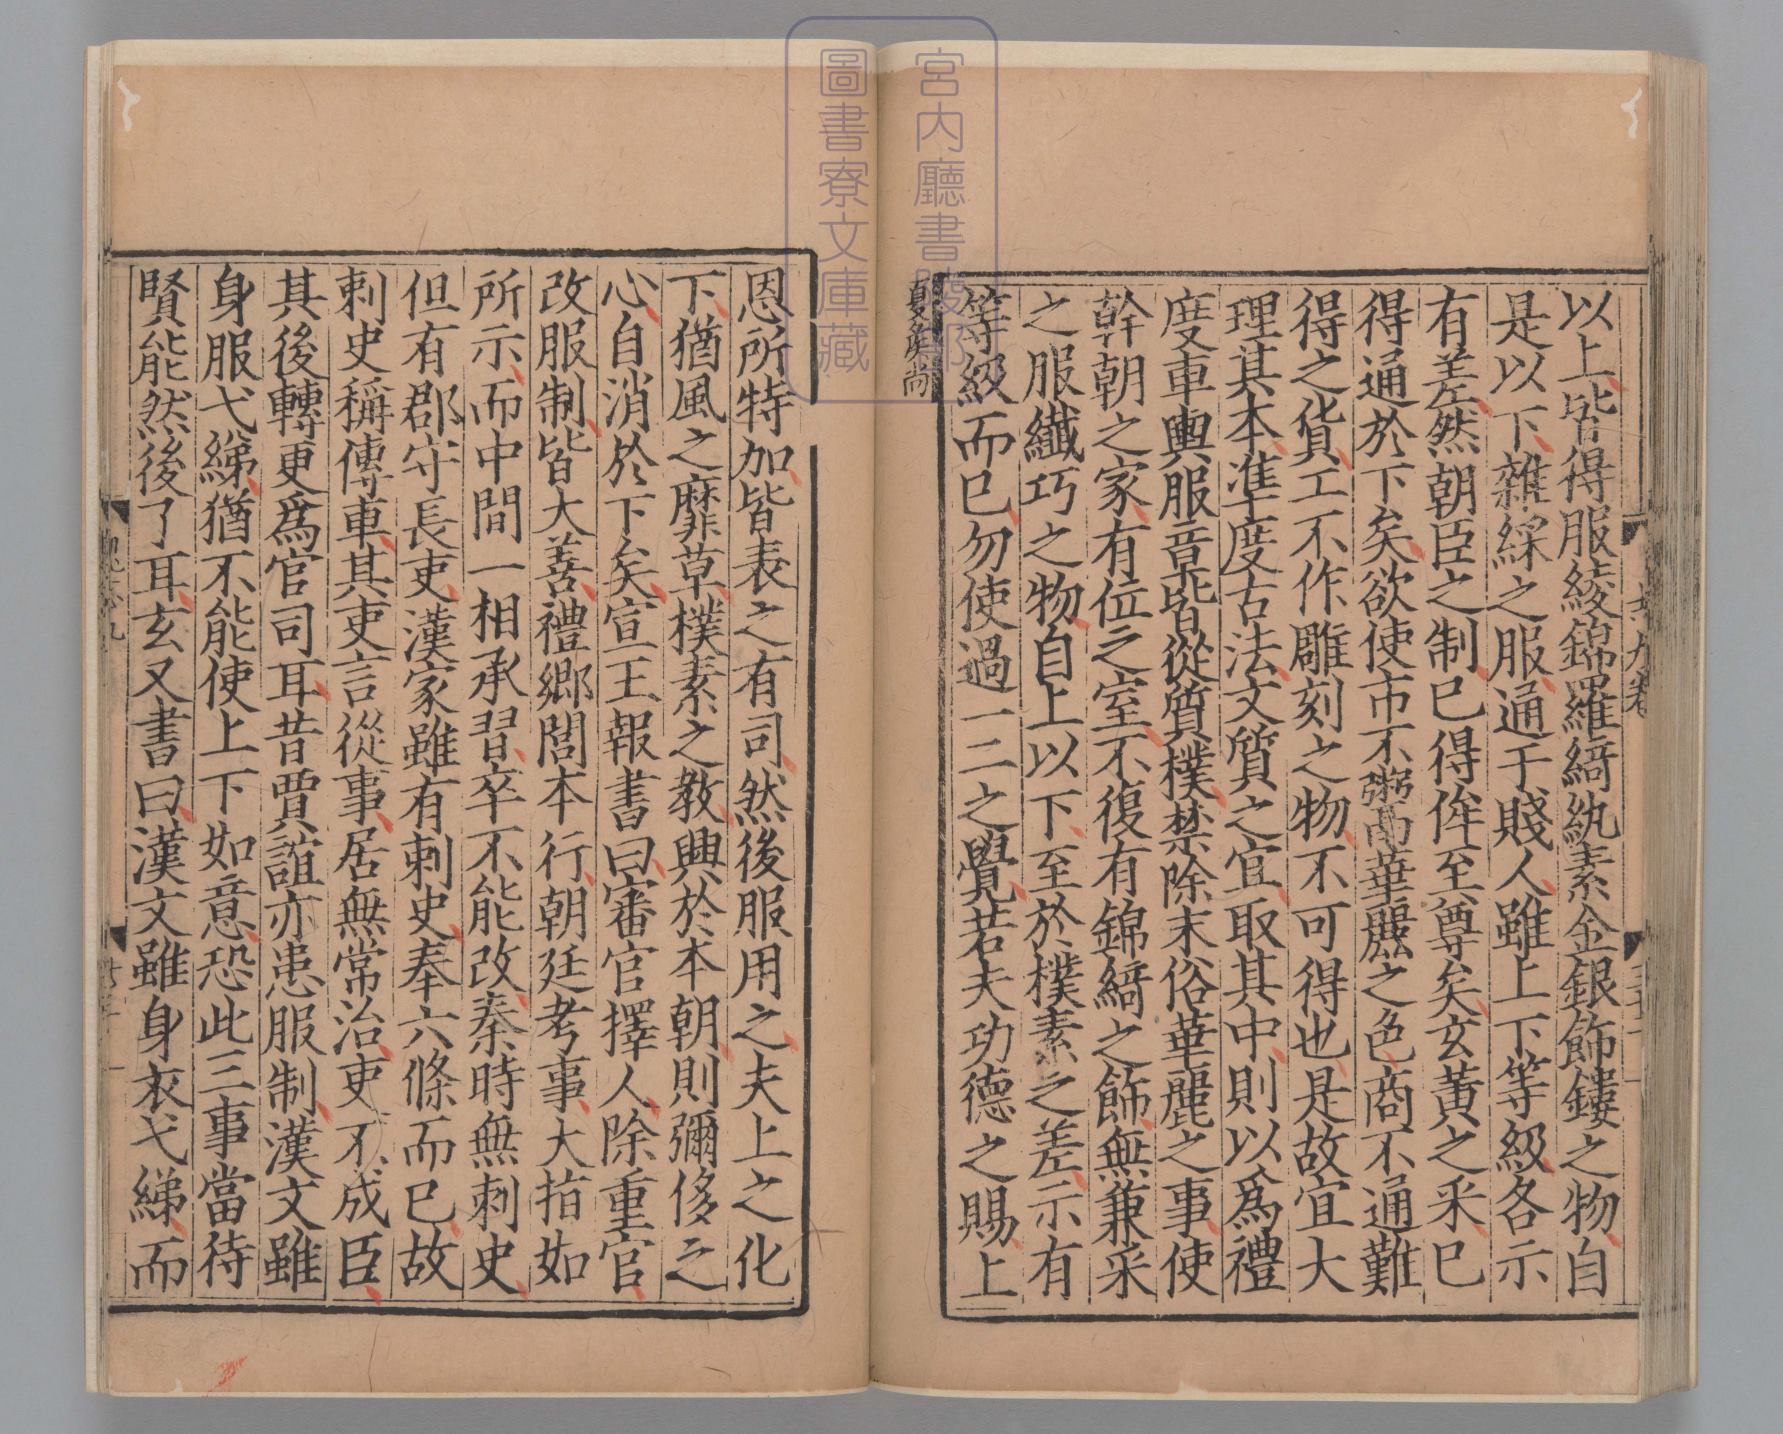 以上皆得服綾錦羅綺紈素金銀飾鏤之物自
是以下雜綵之服通于賤人雖上下等級各示
有差然朝臣之制已得侔至尊矣玄黃之采已
得通於下矣欲使市不鬻華麗之色商不通難
得之貨工不作雕刻之物不可得也是故宜大
理其本準度古法文質之宜取其中則以爲禮
度車輿服章皆從質樸禁除末俗華麗之事使
幹朝之家有位之室不復有錦綺之飾無兼采
之服纖巧之物自上以下至於樸素之差示有
等級而已勿使過一二之覺若夫功德之賜上
夏侯尚
恩所特加皆表之有司然後服用之夫上之化
下猶風之靡草樸素之教興於本朝則彌侈之
心自消於下矣宣王報書曰審官擇人除重官
改服制皆大善禮鄉閭本行朝廷考事大指如
所示而中間一相承習卒不能改秦時無刺史
但有郡守長吏漢家雖有刺史奉六條而已故
刺史稱傳車其吏言從事居無常治吏不成臣
其後轉更爲官司耳昔賈誼亦患服制漢文雖
身服弋綈猶不能使上下如意恐此三事當待
賢能然後了耳玄又書曰漢文雖身衣弋綈而
宮内廳書陵部
圖書寮文庫藏